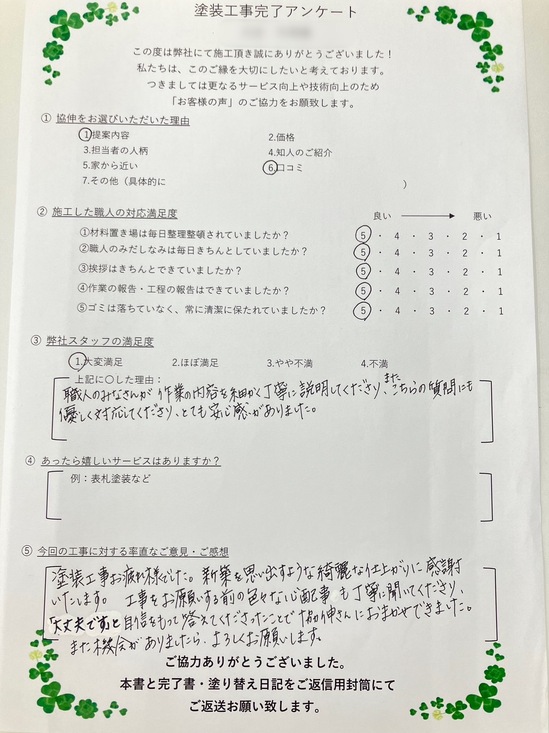 塗装工事完了アンケート
この度は弊社にて施工頂き誠にありがとうございました！
私たちは、このご縁を大切にしたいと考えております。
つきましては更なるサービス向上や技術向上のため
「お客様の声」のご協力をお願致します。
① 協伸をお選びいただいた理由
1.提案内容 2.価格
3.担当者の人柄 4.知人のご紹介
5.家から近い 6.口コミ
7.その他（具体的に ）
② 施工した職人の対応満足度 良い 悪い
①材料置き場は毎日整理整頓されていましたか？ 5 ・ 4 ・ 3 ・ 2 ・ 1
②職人のみだしなみは毎日きちんとしていましたか？ 5 ・ 4 ・ 3 ・ 2 ・ 1
③挨拶はきちんとできていましたか？ 5 ・ 4 ・ 3 ・ 2 ・ 1
④作業の報告・工程の報告はできていましたか？ 5 ・ 4 ・ 3 ・ 2 ・ 1
⑤ゴミは落ちていなく、常に清潔に保たれていましたか？ 5 ・ 4 ・ 3 ・ 2 ・ 1
③ 弊社スタッフの満足度
1.大変満足 2.ほぼ満足 3.やや不満 4.不満
上記に〇した理由：
職人のみなさんが作業の内容を細かく丁寧に説明してくださり、またこちらの質問にも
優しく対応してくださり、とても安心感がありました。
④ あったら嬉しいサービスはありますか？
例：表札塗装など
⑤ 今回の工事に対する率直なご意見・ご感想
塗装工事お疲れ様でした。新築を思い出すような綺麗な仕上がりに感謝
いたします。工事をお願いする前の色々な心配事も丁寧に聞いてくださり、
「大丈夫です」と自信をもって答えてくださったことで協伸さんにおまかせできました。
また機会がありましたら、よろしくお願いします。
ご協力ありがとうございました。
本書と完了書・塗り替え日記をご返信用封筒にて
ご返送お願い致します。